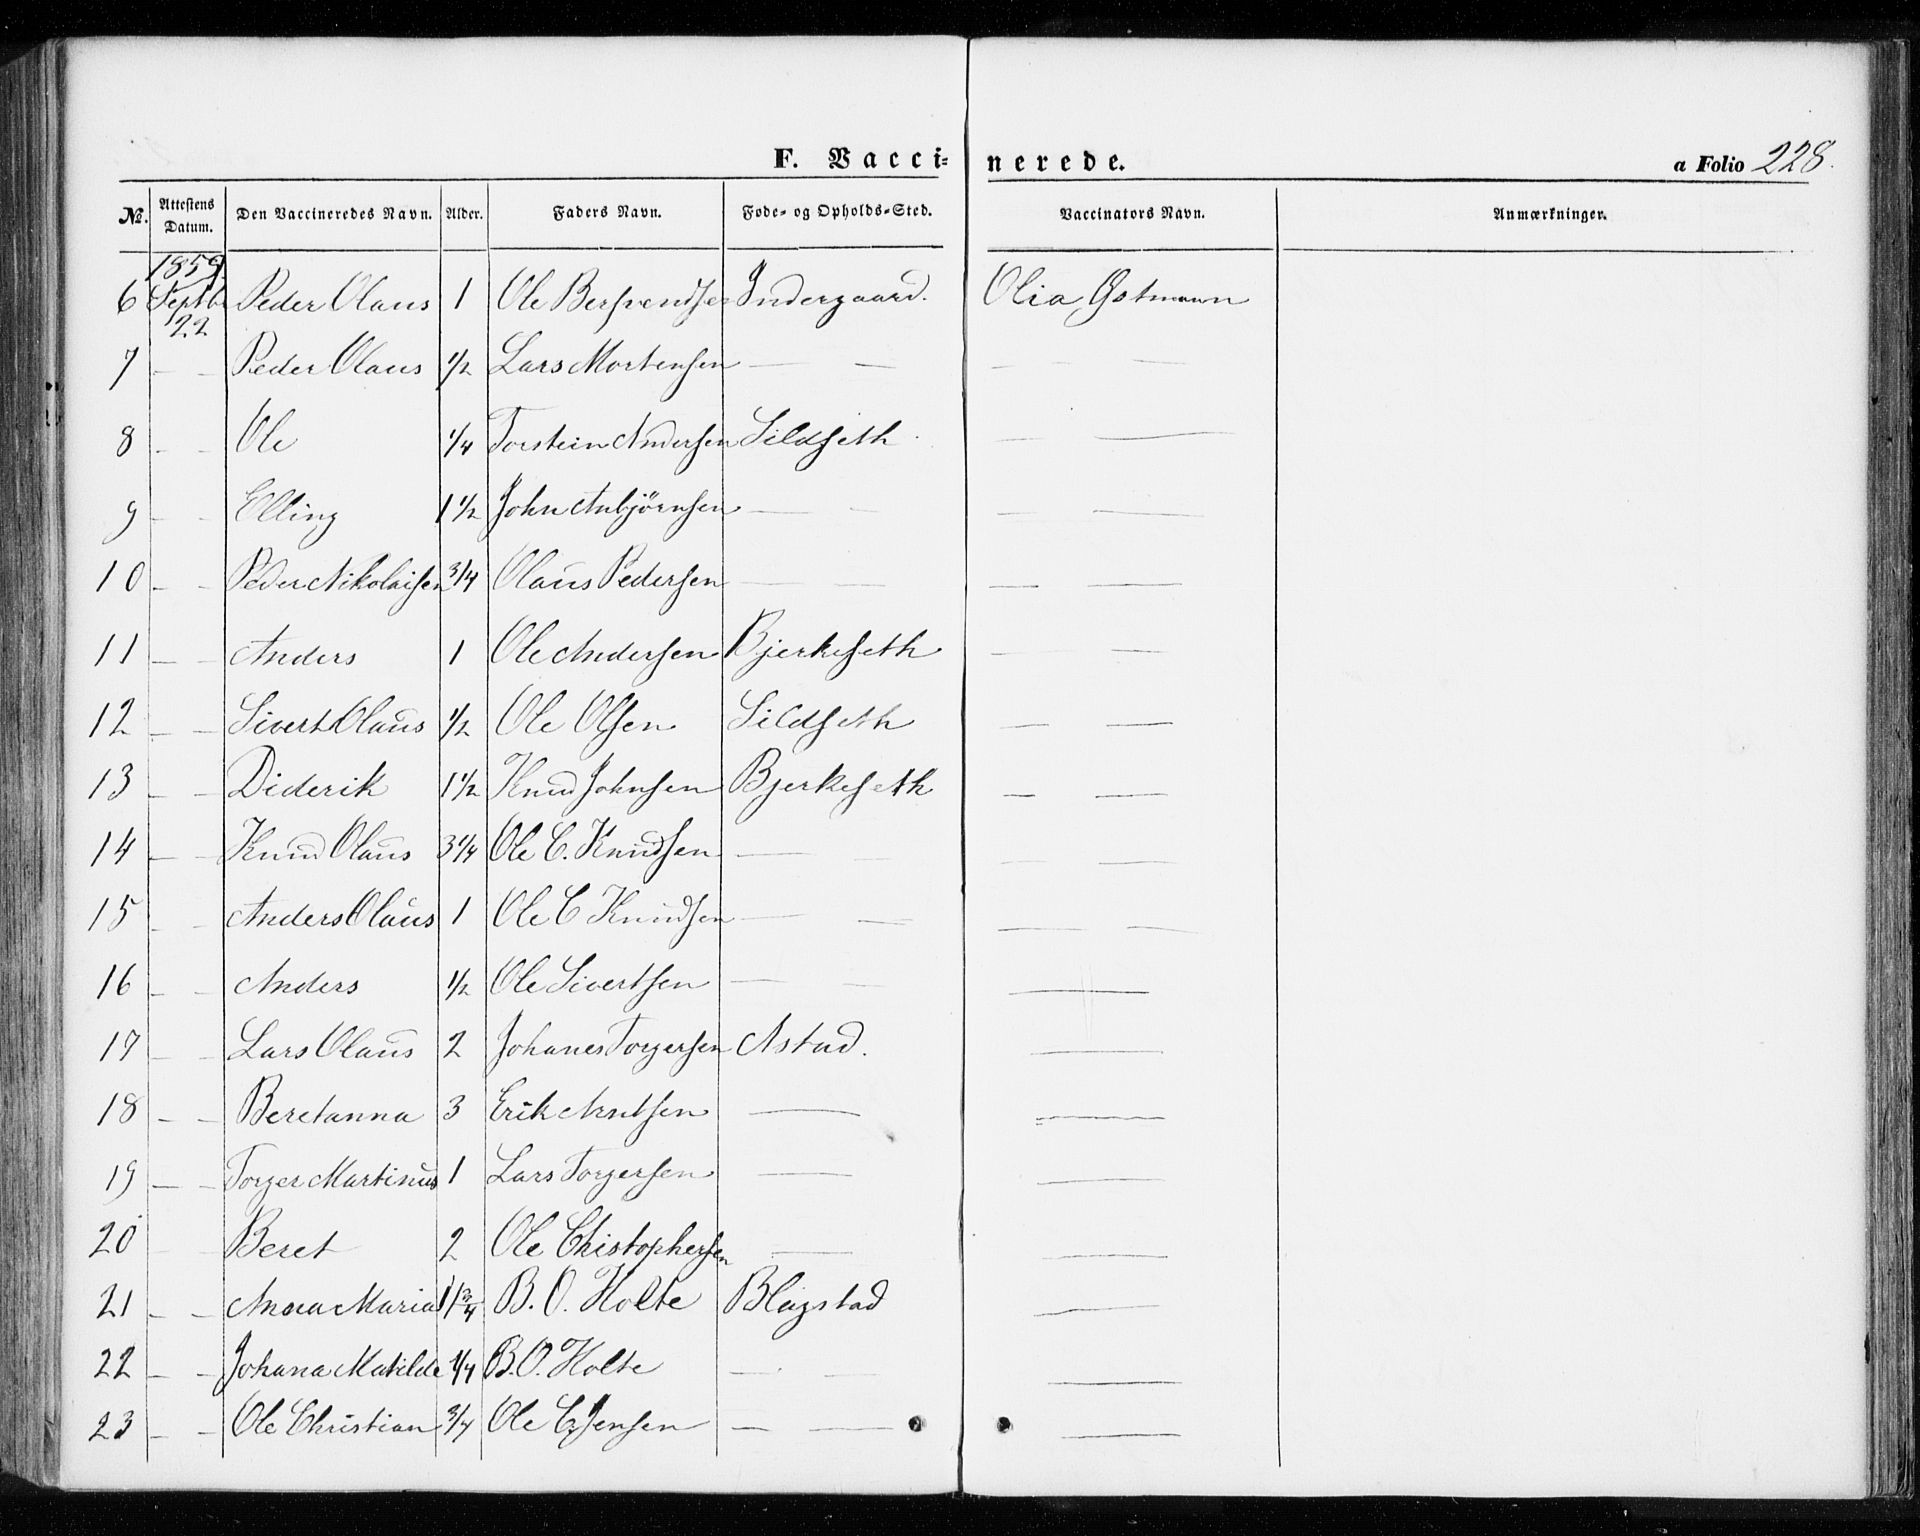 F. Vaccinerede.
a Folio 228.
No. Attestens Datum. Den Vaccineredes Navn. Alder. Faders Navn. Føde- og Opholds-Sted. Vaccinators Navn. Anmærkninger.
1859
6 Septb 22 Peder Olaus 1 Ole Bersvendsen Indergaard. Olia Gotmann
7 — — Peder Olaus 1/2 Lars Mortensen — — — —
8 — — Ole 1/4 Torstein Andersen Sildseth — —
9 — — Elling 1 1/2 John Anbjörnsen — — — —
10 — — Peder Nikolaisen 3/4 Olaus Pedersen — — — —
11 — — Anders 1 Ole Andersen Bjerkeseth — —
12 — — Sivert Olaus 1/2 Ole Olsen Sildseth — —
13 — — Diderik 1 1/2 Knud Johnsen Bjerkeseth — —
14 — — Knud Olaus 3 1/4 Ole C. Knudsen — — — —
15 — — Anders Olaus 1 Ole C Knudsen — — — —
16 — — Anders 1/2 Ole Sivertsen — — —
17 — — Lars Olaus 2 Johanes Torgersen Astad. —
18 — — Beretanna 3 Erik Arntsen — —
19 — — Torger Martinus 1 Lars Torgersen — —
20 — — Beret 2 Ole Christophersen — —
21 — — Anna Maria 1 3/4 B. O. Holte Blegstad —
22 — — Johana Matilde 1/4 B. O. Holte — — —
23 — — Ole Christian 3/4 Ole C. Jensen — — —